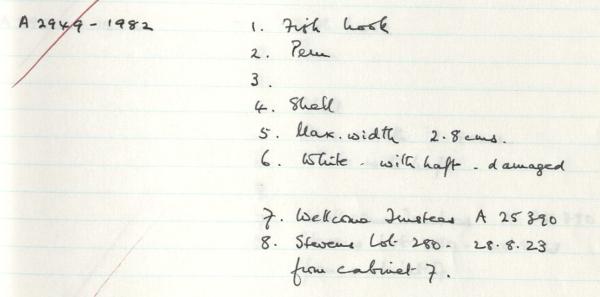 A 2949 - 1982
1. Fish hook
2. Peru
3.
4. Shell
5. Max. width 2.8 cms.
6. White - with haft - damaged
7. Wellcome Trustees A 25390
8. Stevens Lot 280 - 28.8.23
from cabinet 7.